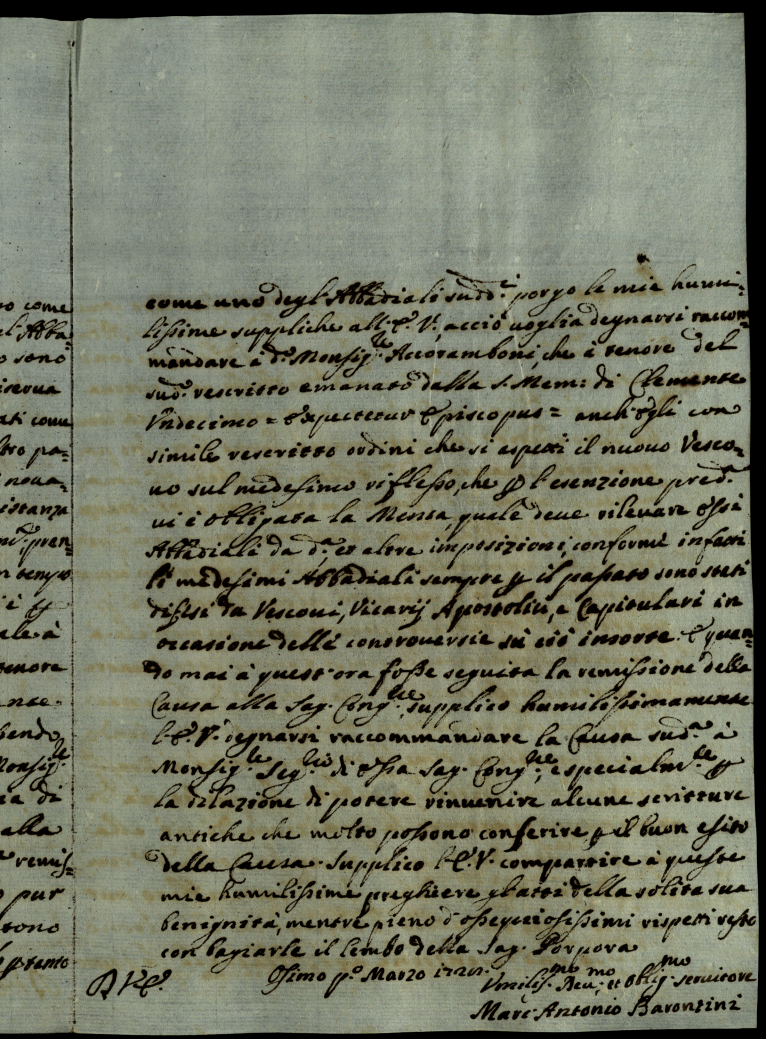 come uno degl'Abbadiali sudd.i porgo le mie humi=
lissime suppliche all'E. V., acciò voglia degnarsi raccom=
mandare à d.o Monsig.re Accoramboni, che à tenore del
sud.o rescritto emanato dalla S. Mem: di Clemente
Vndecimo = Expectetur Episcopus = anch'egli con
simile rescritto ordini che si aspetti il nuovo Vesco=
uo sul medesimo riflesso, che p l'esenzione pred.a
ui è obligata la Mensa, quale deue rileuare essi
Abbadiali da d.a et altre imposizioni, conforme infatti
li medesimi Abbadiali sempre p il passato sono stati
difesi da Vescoui, Vicarij Apostolici, e Capitulari in
occasione delle controuersie sù ciò insorte. E quan=
do mai à quest'ora fosse seguita la remissione della
Causa alla Sag. Cong.ne, supplico humilissimamente
l'E. V. degnarsi raccommandare la Causa sud.a à
Monsig.re Seg.rio di essa Sag. Cong.ne, e specialm.te p
la dilazione di potere rinuenire alcune scritture
antiche che molto possono conferire p il buon esito
della Causa. Supplico l'E. V. compartire à queste
mie humilissime preghiere gl'atti della solita sua
benignità, mentre pieno d'ossequiosissimi rispetti resto
con bagiarle il lembo della Sag. Porpora
Osimo p.o Marzo
Vmilis.mo Deu.mo et Oblig.mo seruitore
Marc'Antonio Barontini
ro come
gl'Abba=
o sono
iserua
ati come
tro pa=
i noua=
istanza
pren=
n tempo
i è p
ale à
tenore
ante.
bendo
Monsig.re
ia di
alla
remis=
o pur
tono